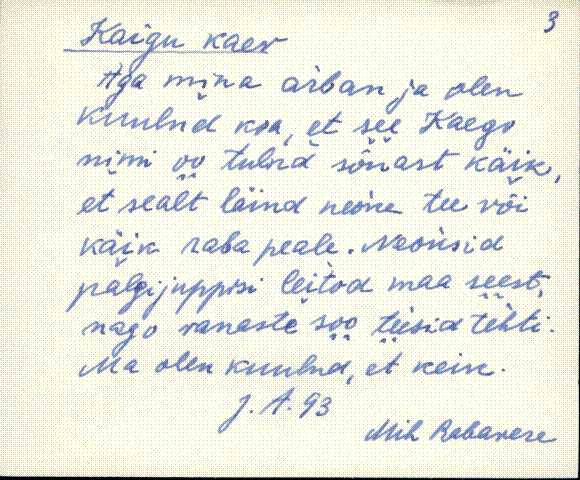 3
Kaigu kaev
Aga mina arban ja olen
kuulnd koa, et see Kaego
nimi oo tulnd sõnast käik,
et sealt läind neoke tee või
käik raba peale. Neoksid
palgijuppisi leitod maa seest,
nago vanaste soo teesid tehti.
Ma olen kuulnd, et keik.
J. A. 93
Mih Rabavere